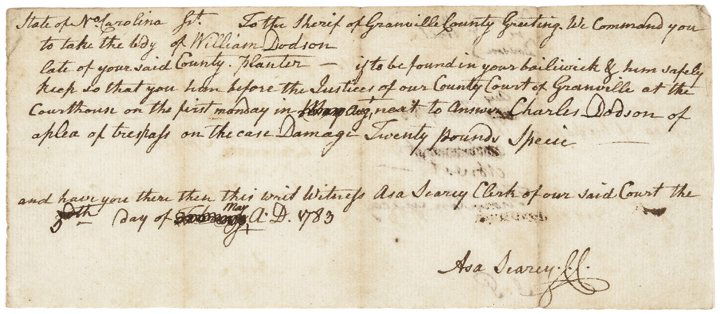 State of No. Carolina Sst. To the Sherif of Granville County Greeting. We Command you
to take the body of William Dodson
late of your said County. planter — if to be found in your bailiwick & him safely
keep so that you him before the Justices of our County Court of Granville at the
Courthouse on the first monday in Augt next to Answer Charles Dodson of
a plea of trespass on the case Damage Twenty pounds Specie
and have you there then this writ Witness Asa Searcy Clerk of our said Court the
5th day of May A.D. 1783
Asa Searcy. C.C.